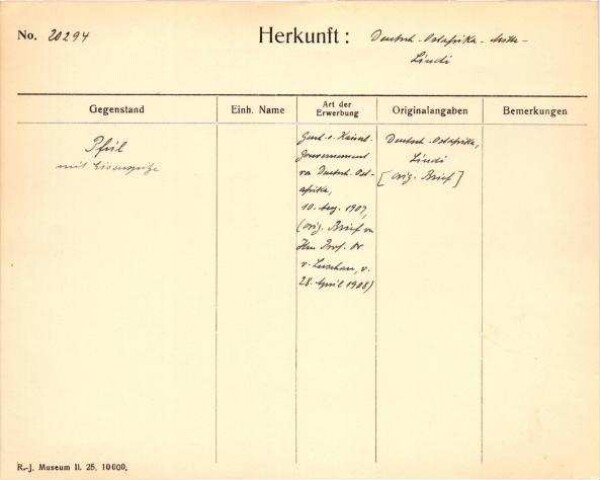 No. 20294
Herkunft: Deutsch-Ostafrika-
Lindi
Gegenstand
Einh. Name
Art der Erwerbung
Originalangaben
Bemerkungen
Pfeil
mit Eisenspitze
Gesch. v. Kaiserl.
Gouvernement
von Deutsch-Ost-
afrika,
10. Aug. 1907,
(orig. Brief v.
Herrn Prof. Dr
v. Luschan, v.
28. April 1908)
Deutsch-Ostafrika,
Lindi
[orig. Brief]
R.-J. Museum II. 25. 10000.